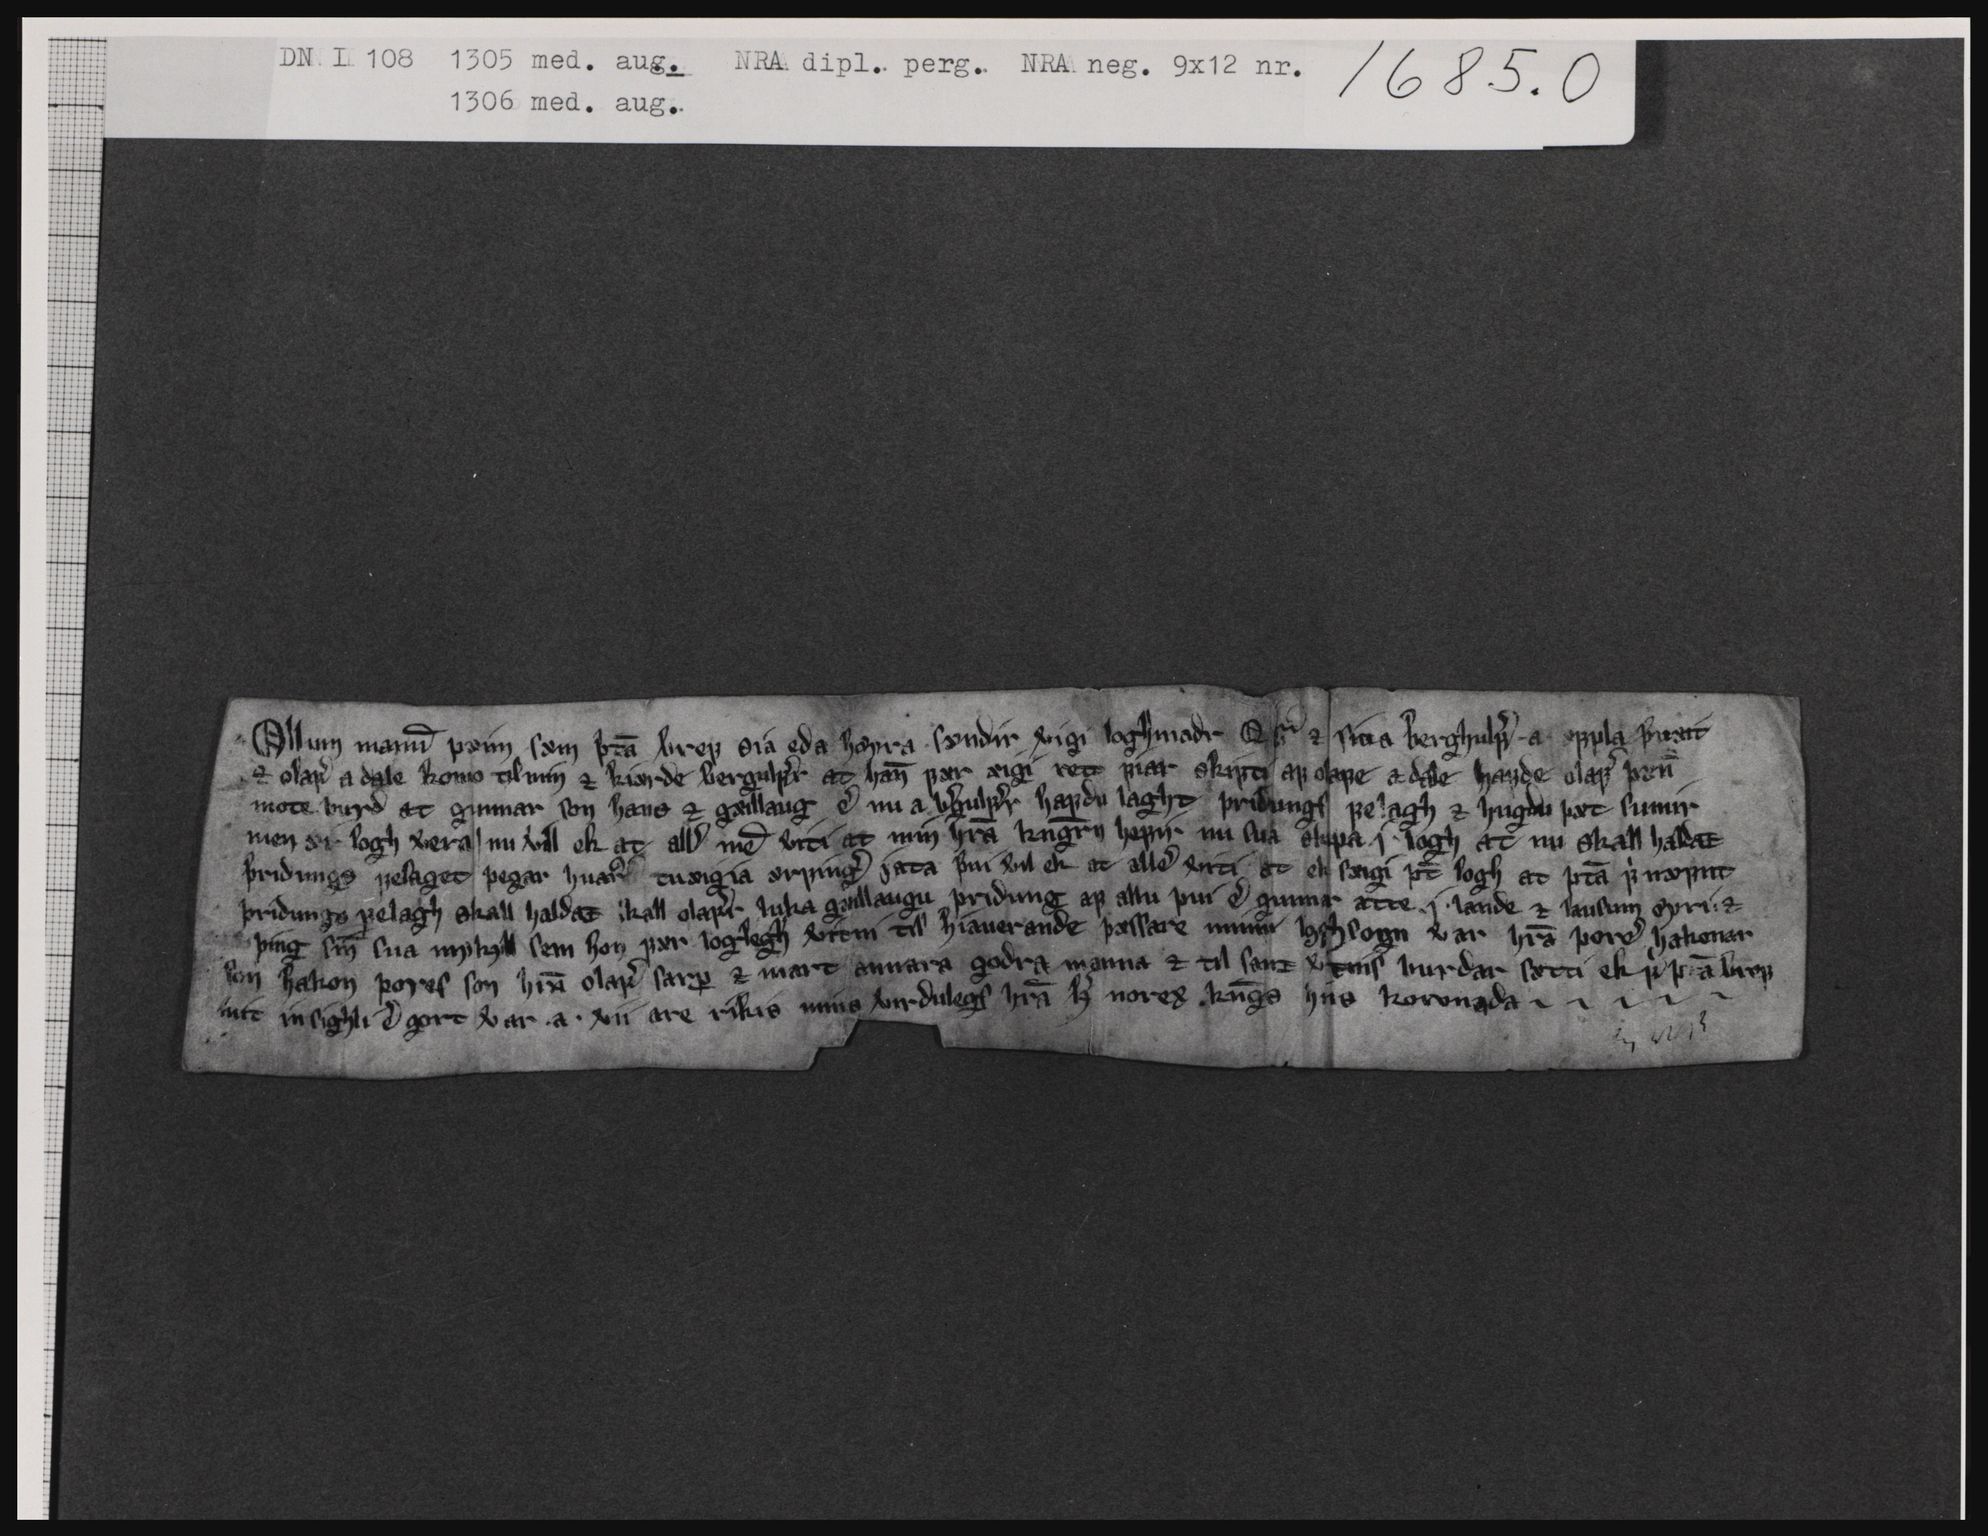 DN I 108 1305 med. aug. NRA dipl. perg. NRA neg. 9x12 nr. 1685.0
1306 med. aug.
Ollum mannū þæim sæm þtā bref sia eda høyra sændir vigi loghmadr Q g̅ ⁊ sina berghulfr a øppla þræit
⁊ olafr a dale komo til min ⁊ kiærde bergulfr at han̄ fær æigi ret fiar skifti af olafe a dale hafde olafr þen̄
mote burd at gunnar son hans ⁊ gæillaug er nu a bergulfr hafdu laght þridungs felagh ⁊ hugdu þæt sumir
men ær logh vera nu vill ek at allr men̄ viti at min hrā kngrn̄ hefir nu sua skipa j logh at nu skall haldaz
þridungs felaget þegar huart tuæigia ærfinger jata þui vil ek at aller viti at ek sægi þt̄ logh at þtā fr næfnt
þridungs felagh skall haldaz skall olafr luka gæillaugu þridung af allu þui er gunnar atte j lande ⁊ lausum øyri ⁊
þing sin̄ sua mykyll sem hon fær loglegh vitni til hiauerande þæssare minni logh sogn var hrā þorer hakonar
son hakon þores son hrā olafr sarp ⁊ mart annara godra manna ⁊ til sanz vitnis burdar sætti ek fr þtā bref
mit insighli er gort var .a. vii are rikis mins virdulegs hrā h̅ norex kngs hins koronada